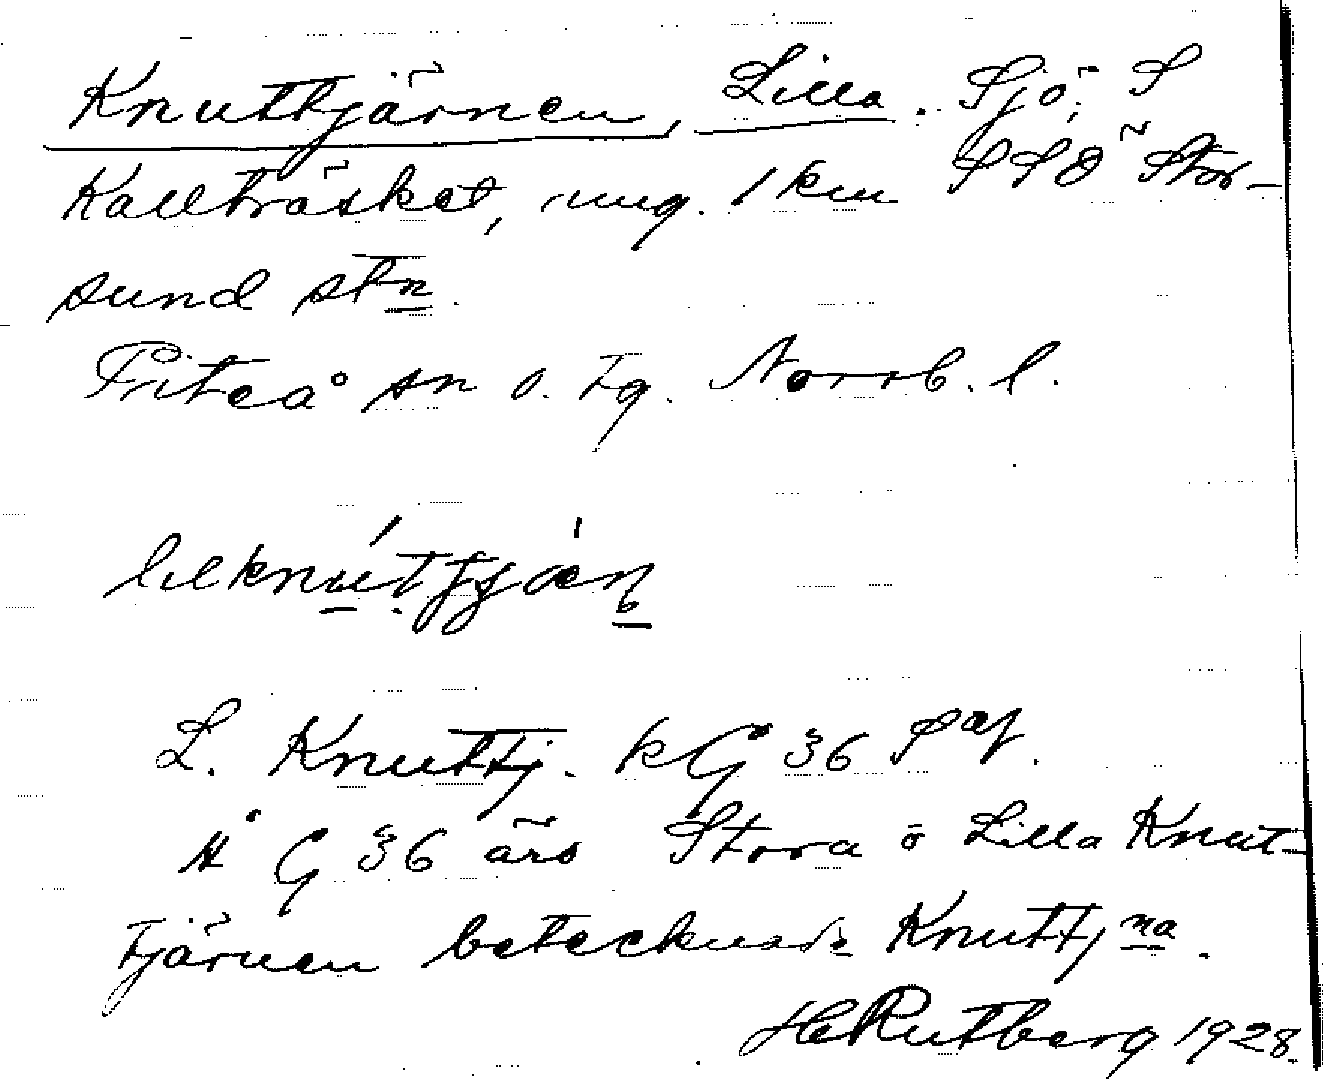 Knuttjärnen, Lilla. Sjö, S
Kallträsket, ung. 1 km SSÖ Stor-
sund stn.
Piteå sn o. tg. Norrb. l.
lilknu̱ttjä́rn
L. Knuttj. kG 36 Saf.
Å G 36 äro Stora o Lilla Knut-
tjärnen betecknade Knuttjna.
H Rutberg 1928.